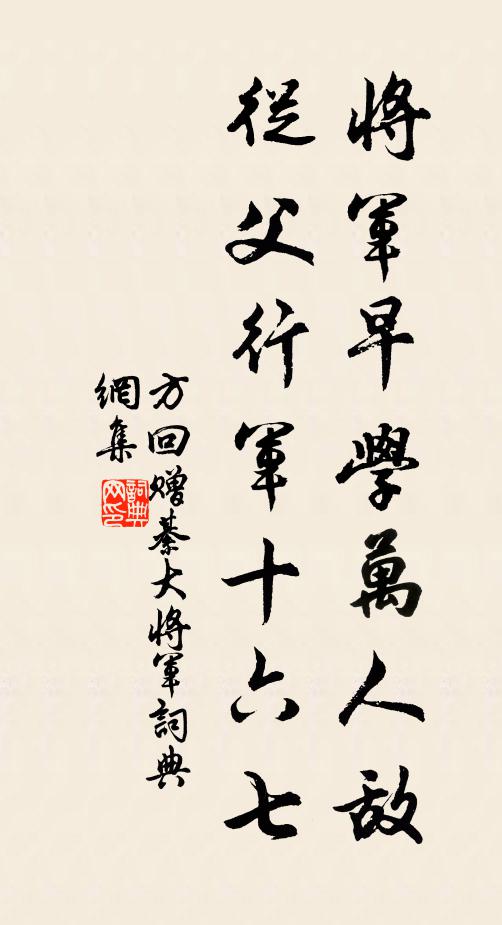 將軍早學萬人敵
從父行軍十六七
方回贈綦大將軍詞典
網集
詞典
网印